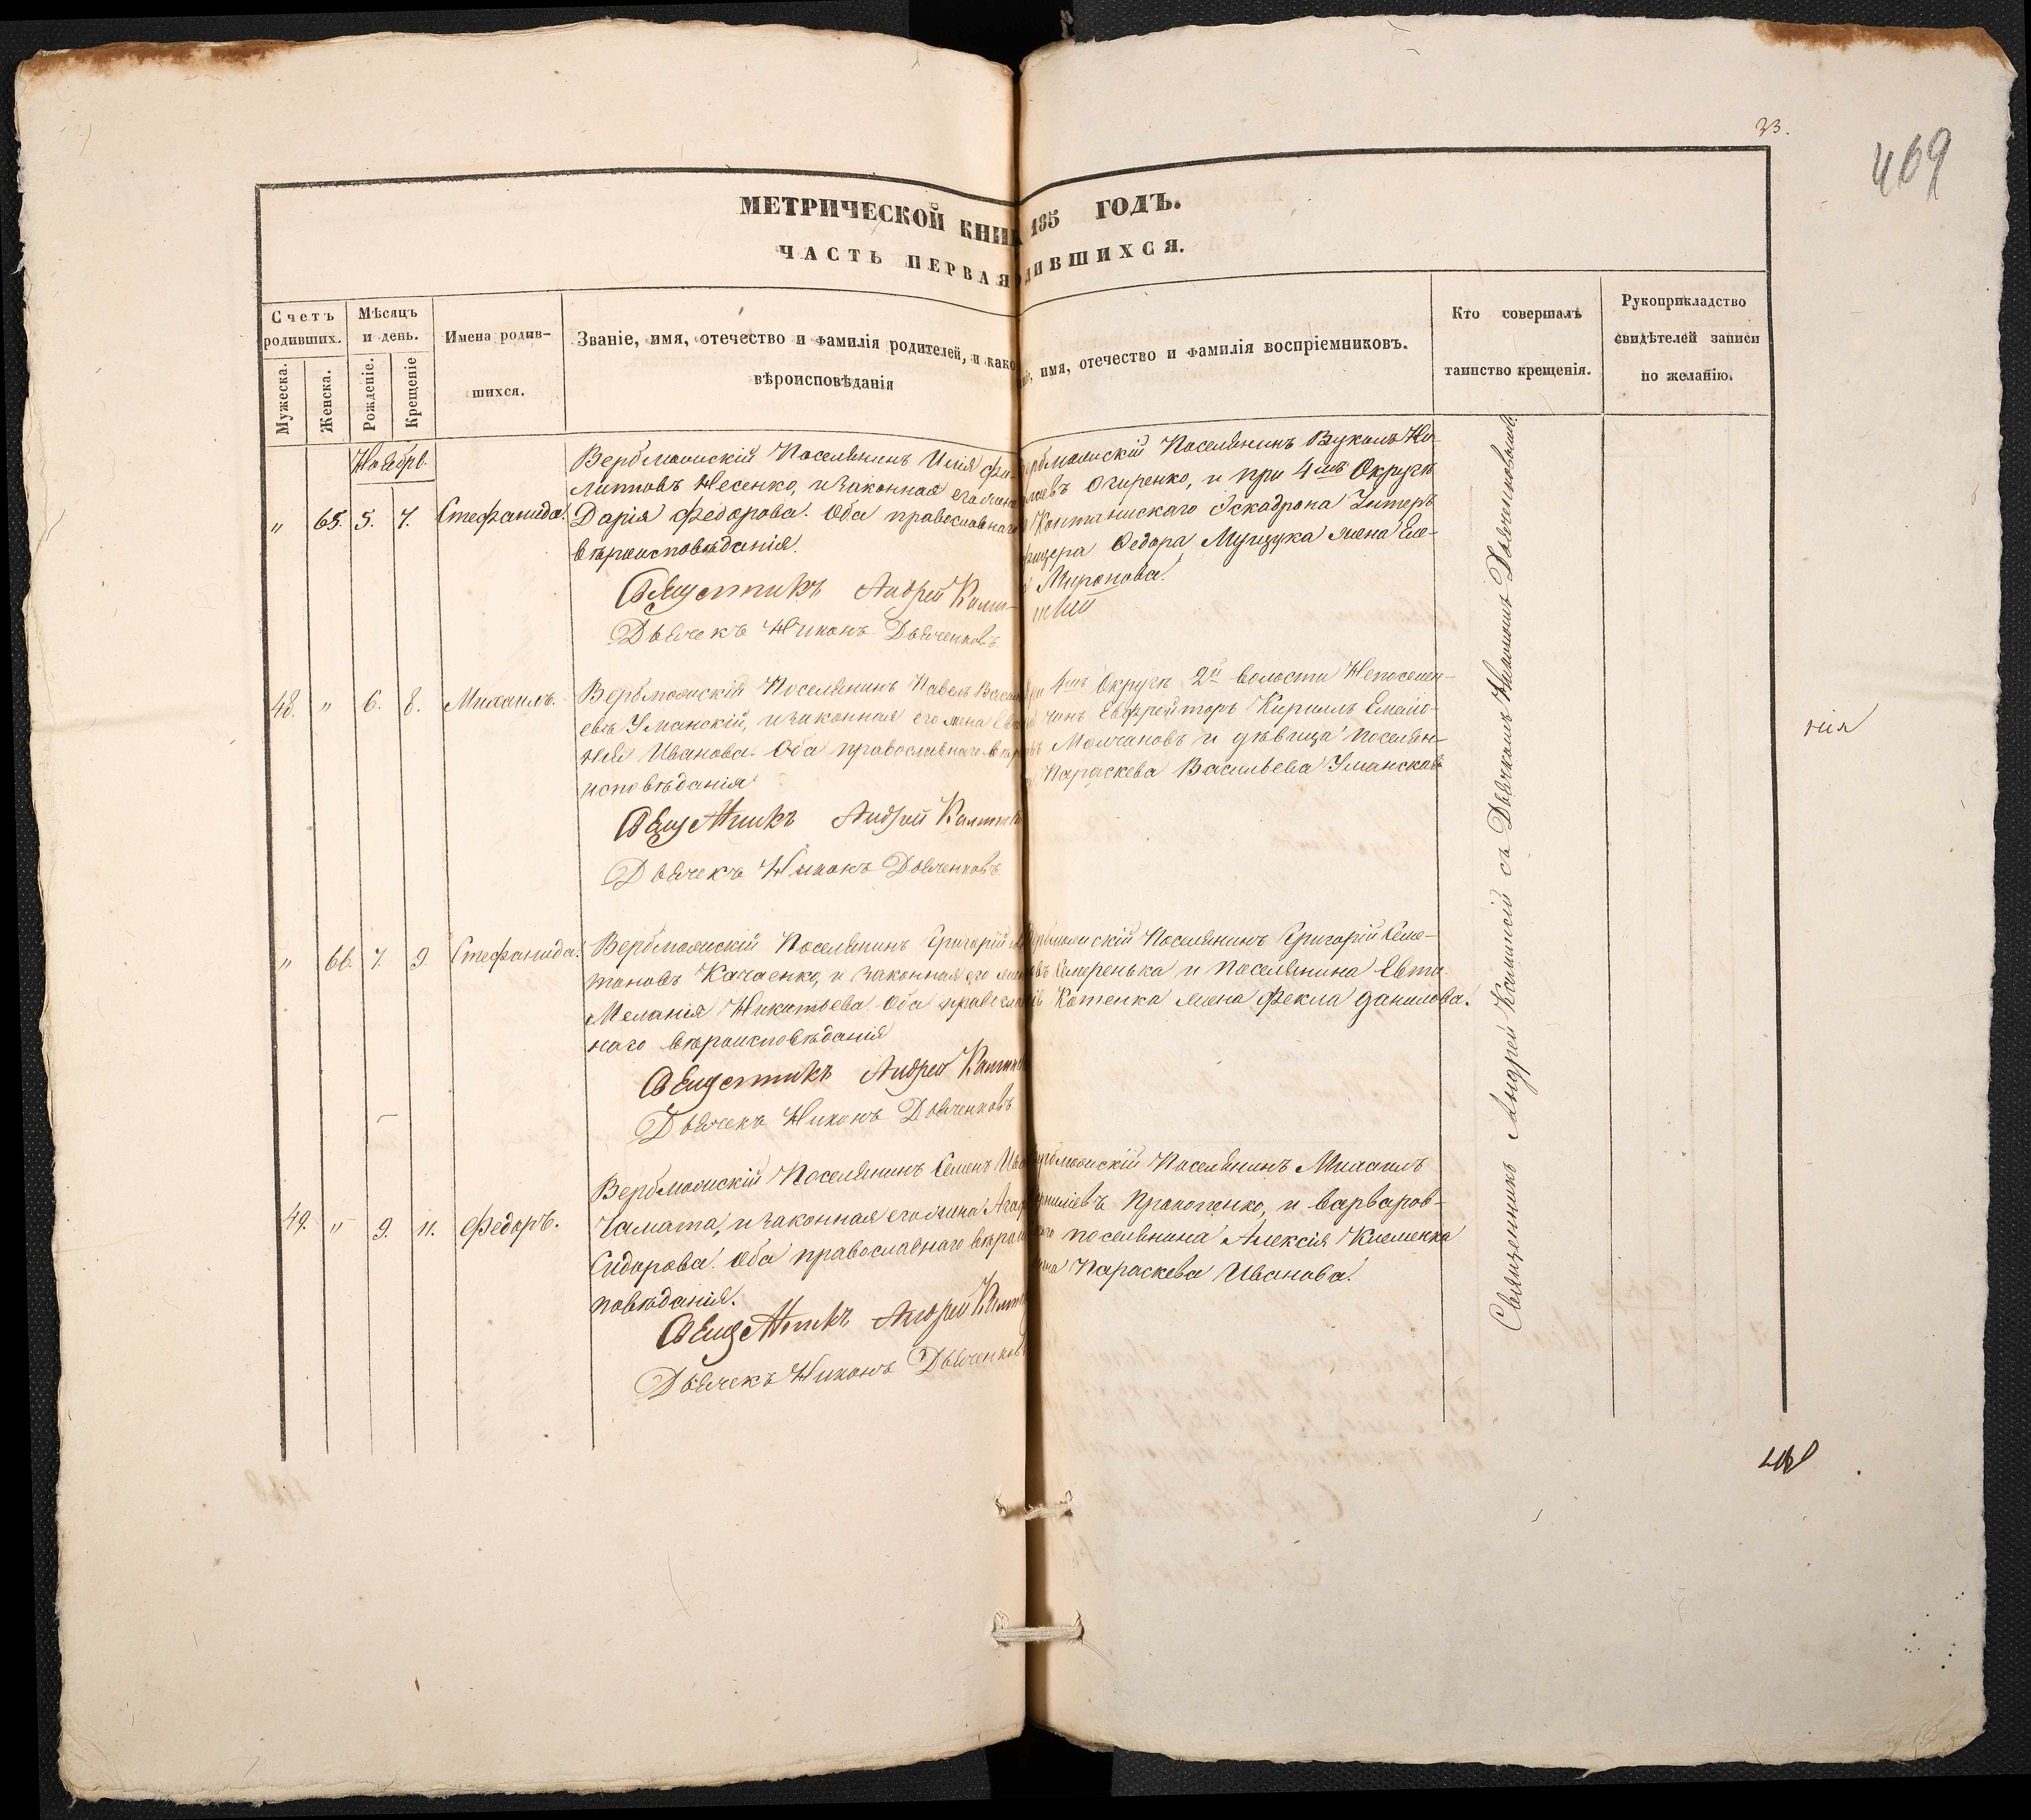 33.
469
МЕТРИЧЕСКОЙ КНИГ 185 ГОДЪ.
ЧАСТЬ ПЕРВАЯ ДИВШИХСЯ.
Счетъ родившихъ.
Мужеска.
Женска.
Мѣсяцъ и день.
Рожденіе.
Крещеніе
Имена родив-
шихся.
Званіе, имя, отечество и фамилія родителей, и како
вѣроисповѣданія
имя, отечество и фамилія воспріемниковъ.
Кто совершалъ
таинство крещенія.
Рукоприкладство
свидѣтелей записи
по желанію.
Ноябрь.
" 65. 5. 7. Стефанида.
Верблюжскій Поселянинъ Илія Фи-
липповъ Несенко, и законная его жена
Дарія Федорова. Оба православнаго
вѣроисповѣданія.
Священникъ Андрей
Дьячекъ Никонъ Дьяченковъ
Поселянинъ Вуколъ
Огиренко, и при 4мъ Округѣ
Эскадрона Унтеръ
Федора жена Еле-
Миронова.
48. " 6. 8. Михаилъ.
Верблюжскій Поселянинъ Павелъ Васил
евъ Уманскій, и законная его жена
Иванова. Оба православнаго вѣро
исповѣданія
Священникъ Андрей
Дьячекъ Никонъ Дьяченковъ
4мъ Округѣ 2й волости Непоселен-
чинъ Ефрейторъ Кириллъ Емелья-
Молчановъ и дѣвица поселян-
Параскева Васильева Уманская
нія
" 66. 7. 9. Стефанида.
Верблюжскій Поселянинъ Григорій
тоновъ Качаенко, и законная его жена
Меланія Никитьева Оба православ
наго вѣроисповѣданія
Священникъ Андрей
Дьячекъ Никонъ Дьяченковъ
Поселянинъ Григорій Семе-
Семеренька и Поселянина Евти-
Котенка жена Фекла Данилова.
49. " 9. 11. Федоръ.
Верблюжскій Поселянинъ Семенъ Ива
Чамата, и законная его жена Агаф
Сидорова. Оба православнаго вѣроис
повѣданія.
Священникъ Андрей
Дьячекъ Никонъ Дьяченковъ
Поселянинъ Михаилъ
Прокопенко, и Варваров-
поселянина Алексія Клеменка
Параскева Иванова.
Священникъ Андрей съ Дьячкомъ Никономъ Дьяченковымъ.